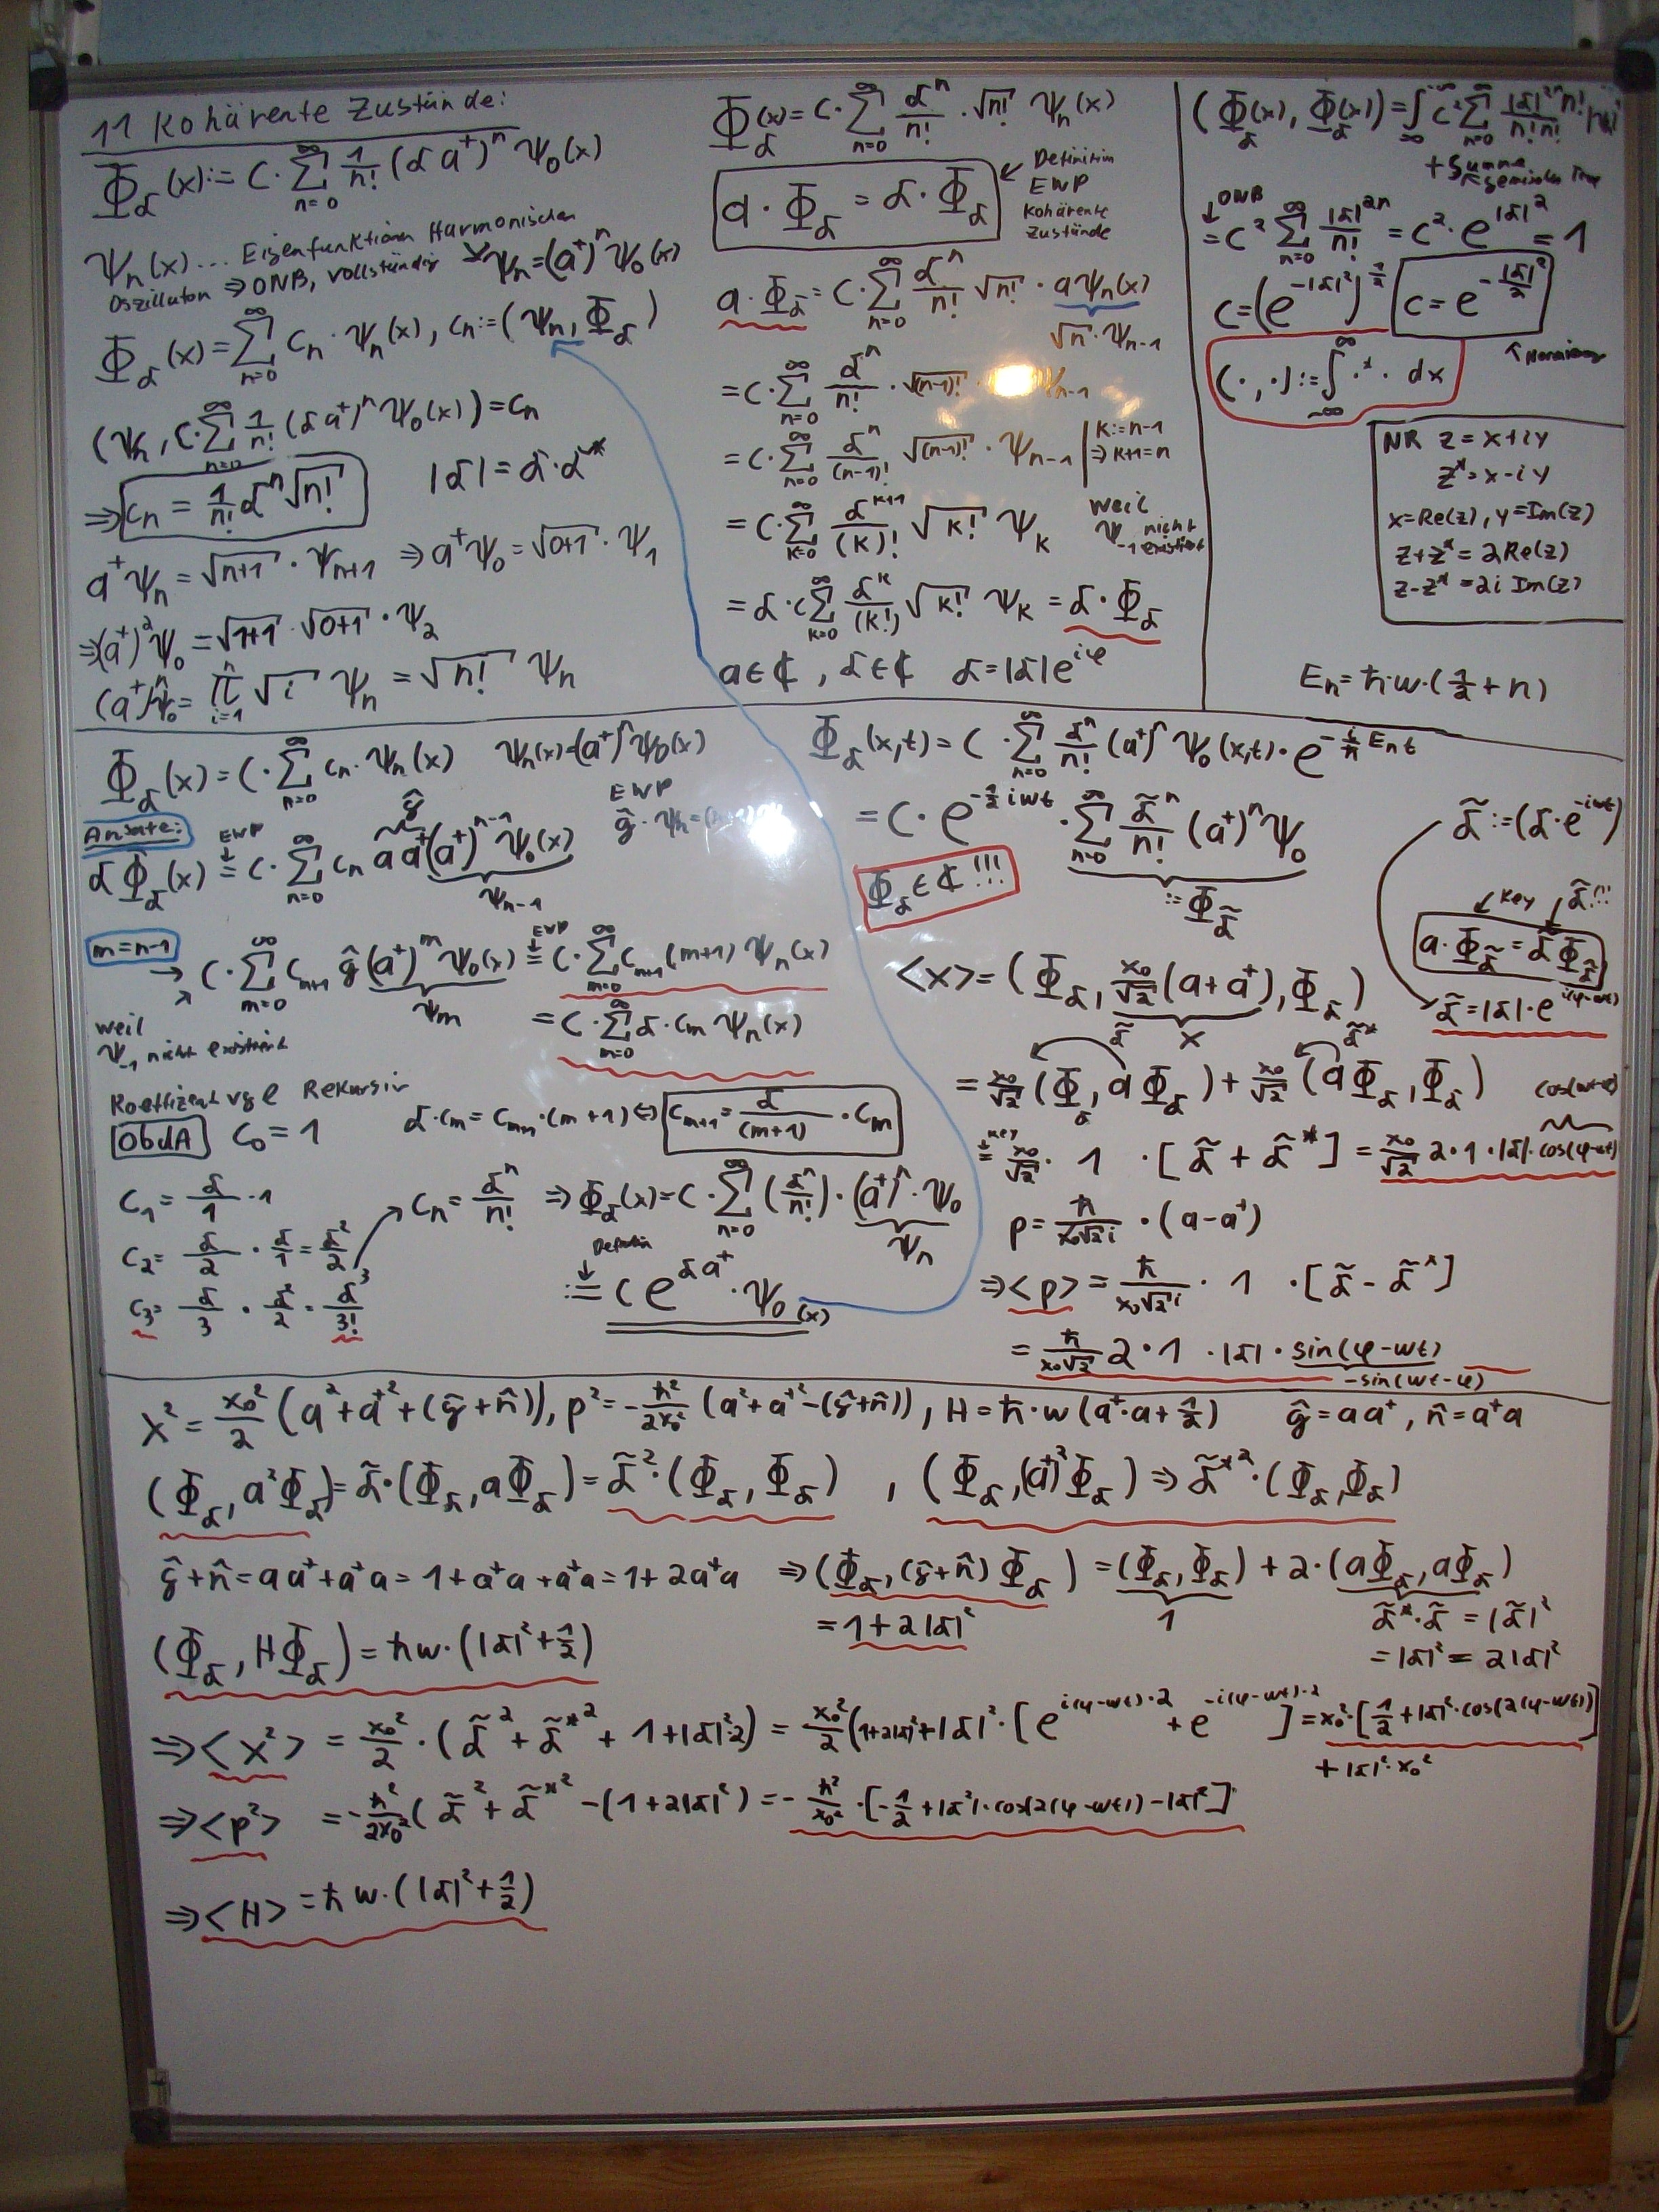 11 Kohärente Zustände:
Φ_α(x) := C·∑_{n=0}^∞ 1/n! (α a⁺)ⁿ Ψ₀(x)
Ψ_n(x)... Eigenfunktionen Harmonischer
Oszillator ⇒ ONB, vollständig Ψ_n = (a⁺)ⁿ Ψ₀(x)
Φ_α(x) = ∑_{n=0}^∞ c_n · Ψ_n(x), c_n := (Ψ_n, Φ_α)
(Ψ_n, C·∑_{n=0}^∞ 1/n! (α a⁺)ⁿ Ψ₀(x)) = c_n
⇒ c_n = 1/n! αⁿ √n! |α| = α·α*
a⁺Ψ_n = √n+1 · Ψ_{n+1} ⇒ a⁺Ψ₀ = √0+1 · Ψ₁
⇒ (a⁺)²Ψ₀ = √1+1 · √0+1 · Ψ₂
(a⁺)ⁿΨ₀ = ∏_{i=1}^n √i Ψ_n = √n! Ψ_n
Φ_α(x) = C·∑_{n=0}^∞ αⁿ/n! · √n! Ψ_n(x)
a · Φ_α = α · Φ_α
Definition
EWP
Kohärente
Zustände
a · Φ_α = C·∑_{n=0}^∞ αⁿ/n! √n! · aΨ_n(x)
√n · Ψ_{n-1}
= C·∑_{n=0}^∞ αⁿ/n! · √(n-1)! · Ψ_{n-1}
= C·∑_{n=0}^∞ αⁿ/(n-1)! √(n-1)! · Ψ_{n-1} | k:=n-1
⇒ k+1=n
= C·∑_{k=0}^∞ α^{k+1}/(k)! √k! Ψ_k weil
Ψ_{-1} nicht
existiert
= α·C∑_{k=0}^∞ α^k/(k!) √k! Ψ_k = α·Φ_α
a ∈ ℂ, α ∈ ℂ α = |α|e^{iφ}
(Φ_α(x), Φ_α(x)) = ∫ C² ∑_{n=0}^∞ |α|^{2n} n!/n!n!
+ Summe
ONB
= C² ∑_{n=0}^∞ |α|^{2n}/n! = C² · e^{|α|²} = 1
C = (e^{-|α|²})^{1/2} C = e^{-|α|²/2}
(·,·) := ∫_{-∞}^∞ ·* · dx
NR z = x+iy
z* = x-iy
x=Re(z), y=Im(z)
z+z* = 2Re(z)
z-z* = 2i Im(z)
E_n = ħ·w·(1/2 + n)
Φ_α(x) = C·∑_{n=0}^∞ c_n · Ψ_n(x) Ψ_n(x) = (a⁺)ⁿΨ₀(x)
Ansatz: EWP ĝ
EWP
ĝ · Ψ_n =
α Φ_α(x) = C·∑_{n=0}^∞ c_n a a⁺(a⁺)^{n-1} Ψ₀(x)
Ψ_{n-1}
m=n-1
→ C·∑_{m=0}^∞ c_{m+1} ĝ (a⁺)^m Ψ₀(x) = C·∑_{m=0}^∞ c_{m+1}(m+1) Ψ_n(x)
EWP
Ψ_m
weil
Ψ_{-1} nicht existiert
= C·∑_{m=0}^∞ α·c_m Ψ_n(x)
Koeffizent vgl Rekursiv
ObdA C₀ = 1 α·c_m = c_{m+1}·(m+1) ⇔ c_{m+1} = α/(m+1) · c_m
C₁ = α/1 · 1
C₂ = α/2 · α/1 = α²/2
C₃ = α/3 · α²/2 = α³/3!
c_n = αⁿ/n! ⇒ Φ_α(x) = C·∑_{n=0}^∞ (αⁿ/n!) · (a⁺)ⁿ · Ψ₀
Ψ_n
:= C e^{αa⁺} · Ψ₀(x)
Φ_α(x,t) = C·∑_{n=0}^∞ αⁿ/n! (a⁺)ⁿ Ψ₀(x,t) · e^{-i/ħ E_n t}
= C · e^{-1/2 iwt} · ∑_{n=0}^∞ α̃ⁿ/n! (a⁺)ⁿ Ψ₀
:= Φ_α̃
α̃ := (α·e^{-iwt})
Φ_α ∈ ℂ !!!
Key α̃!!!
a · Φ_α̃ = α̃ Φ_α̃
α̃ = |α|·e^{i(φ-wt)}
<x> = (Φ_α, x₀/√2 (a+a⁺), Φ_α)
x
= x₀/√2 (Φ_α, aΦ_α) + x₀/√2 (aΦ_α, Φ_α)
α̃ α̃*
cos(wt-φ)
Key
= x₀/√2 · 1 · [α̃ + α̃*] = x₀/√2 2·1·|α|·cos(φ-wt)
p = ħ/x₀√2i · (a-a⁺)
⇒ <p> = ħ/x₀√2i · 1 · [α̃ - α̃*]
= ħ/x₀√2 2·1 ·|α|· sin(φ-wt)
-sin(wt-φ)
x² = x₀²/2 (a²+a⁺²+(ĝ+n̂)), p² = -ħ²/2x₀² (a²+a⁺²-(ĝ+n̂)), H = ħ·w(a⁺·a+1/2) ĝ = aa⁺, n̂ = a⁺a
(Φ_α, a²Φ_α) = α̃·(Φ_α, aΦ_α) = α̃²·(Φ_α, Φ_α), (Φ_α, (a⁺)²Φ_α) ⇒ α̃*²·(Φ_α, Φ_α)
ĝ+n̂ = aa⁺+a⁺a = 1+a⁺a+a⁺a = 1+2a⁺a ⇒ (Φ_α, (ĝ+n̂)Φ_α) = (Φ_α, Φ_α) + 2·(aΦ_α, aΦ_α)
= 1+2|α|² 1 α̃*·α̃ = |α̃|²
= |α|² = 2|α|²
(Φ_α, HΦ_α) = ħw·(|α|²+1/2)
⇒ <x²> = x₀²/2 · (α̃² + α̃*² + 1+|α|²2) = x₀²/2 (1+2|α|²+|α|²·[e^{i(φ-wt)·2} + e^{-i(φ-wt)·2}] = x₀²·[1/2+|α|²·cos(2(φ-wt))]
+|α|²·x₀²
⇒ <p²> = -ħ²/2x₀² (α̃² + α̃*² - (1+2|α|²) = -ħ²/x₀² ·[-1/2+|α²|·cos(2(φ-wt))-|α|²]
⇒ <H> = ħw·(|α|²+1/2)